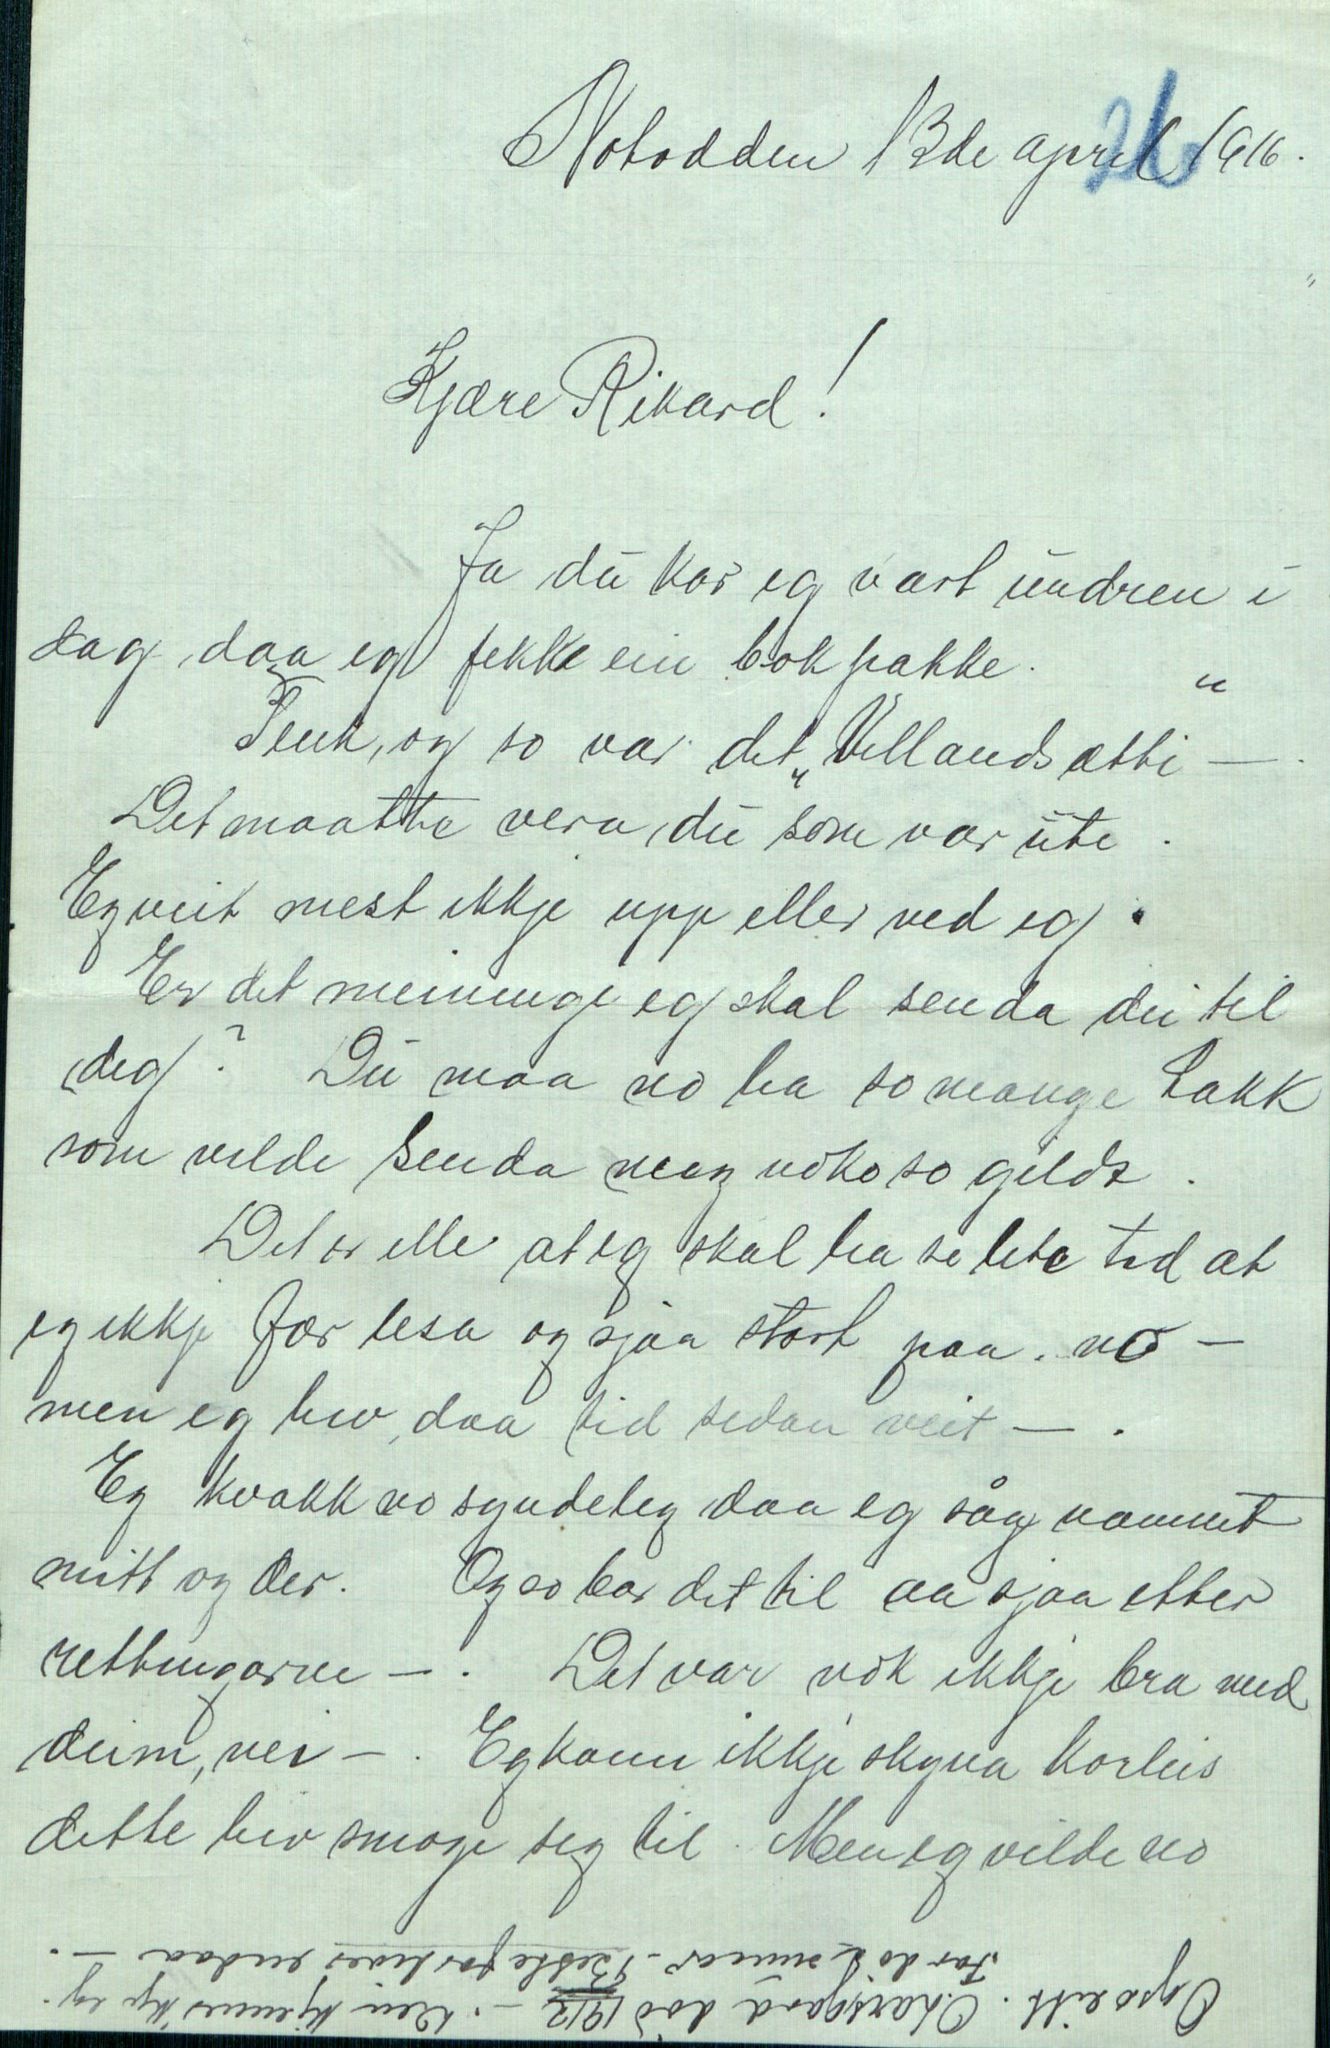 Notodden 13de april 1916.
26
Kjære Rikard!
Ja du kor eg vart undren i
dag, daa eg fekk ein bokpakke.
Tenk, og so var det „Vellandsætti“ —.
Det maatte vera du som var ute.
Eg veit mest ikkje upp eller ned eg.
Er det meininge eg skal senda du til
deg? Du maa no ha so mange takk
som vilde senda meg noko so gildt.
Det er ille at eg skal ha so lite tid at
eg ikkje fær lesa og sjaa stort paa. no —
men eg hev daa tid sedan veit —.
Eg kvakk no syndeleg daa eg såg namnet
mitt og der. Og so bar det til aa sjaa etter
rettingarne —. Det var nok ikkje bra med
deim, nei —. Eg kann ikkje skyna korleis
dette hev smoge seg til. Men eg vilde no
Og so eitt. O. Larsgard død 1912 —. Den kjenner ikkje eg.
Far do d. Beste far liver endaa —.